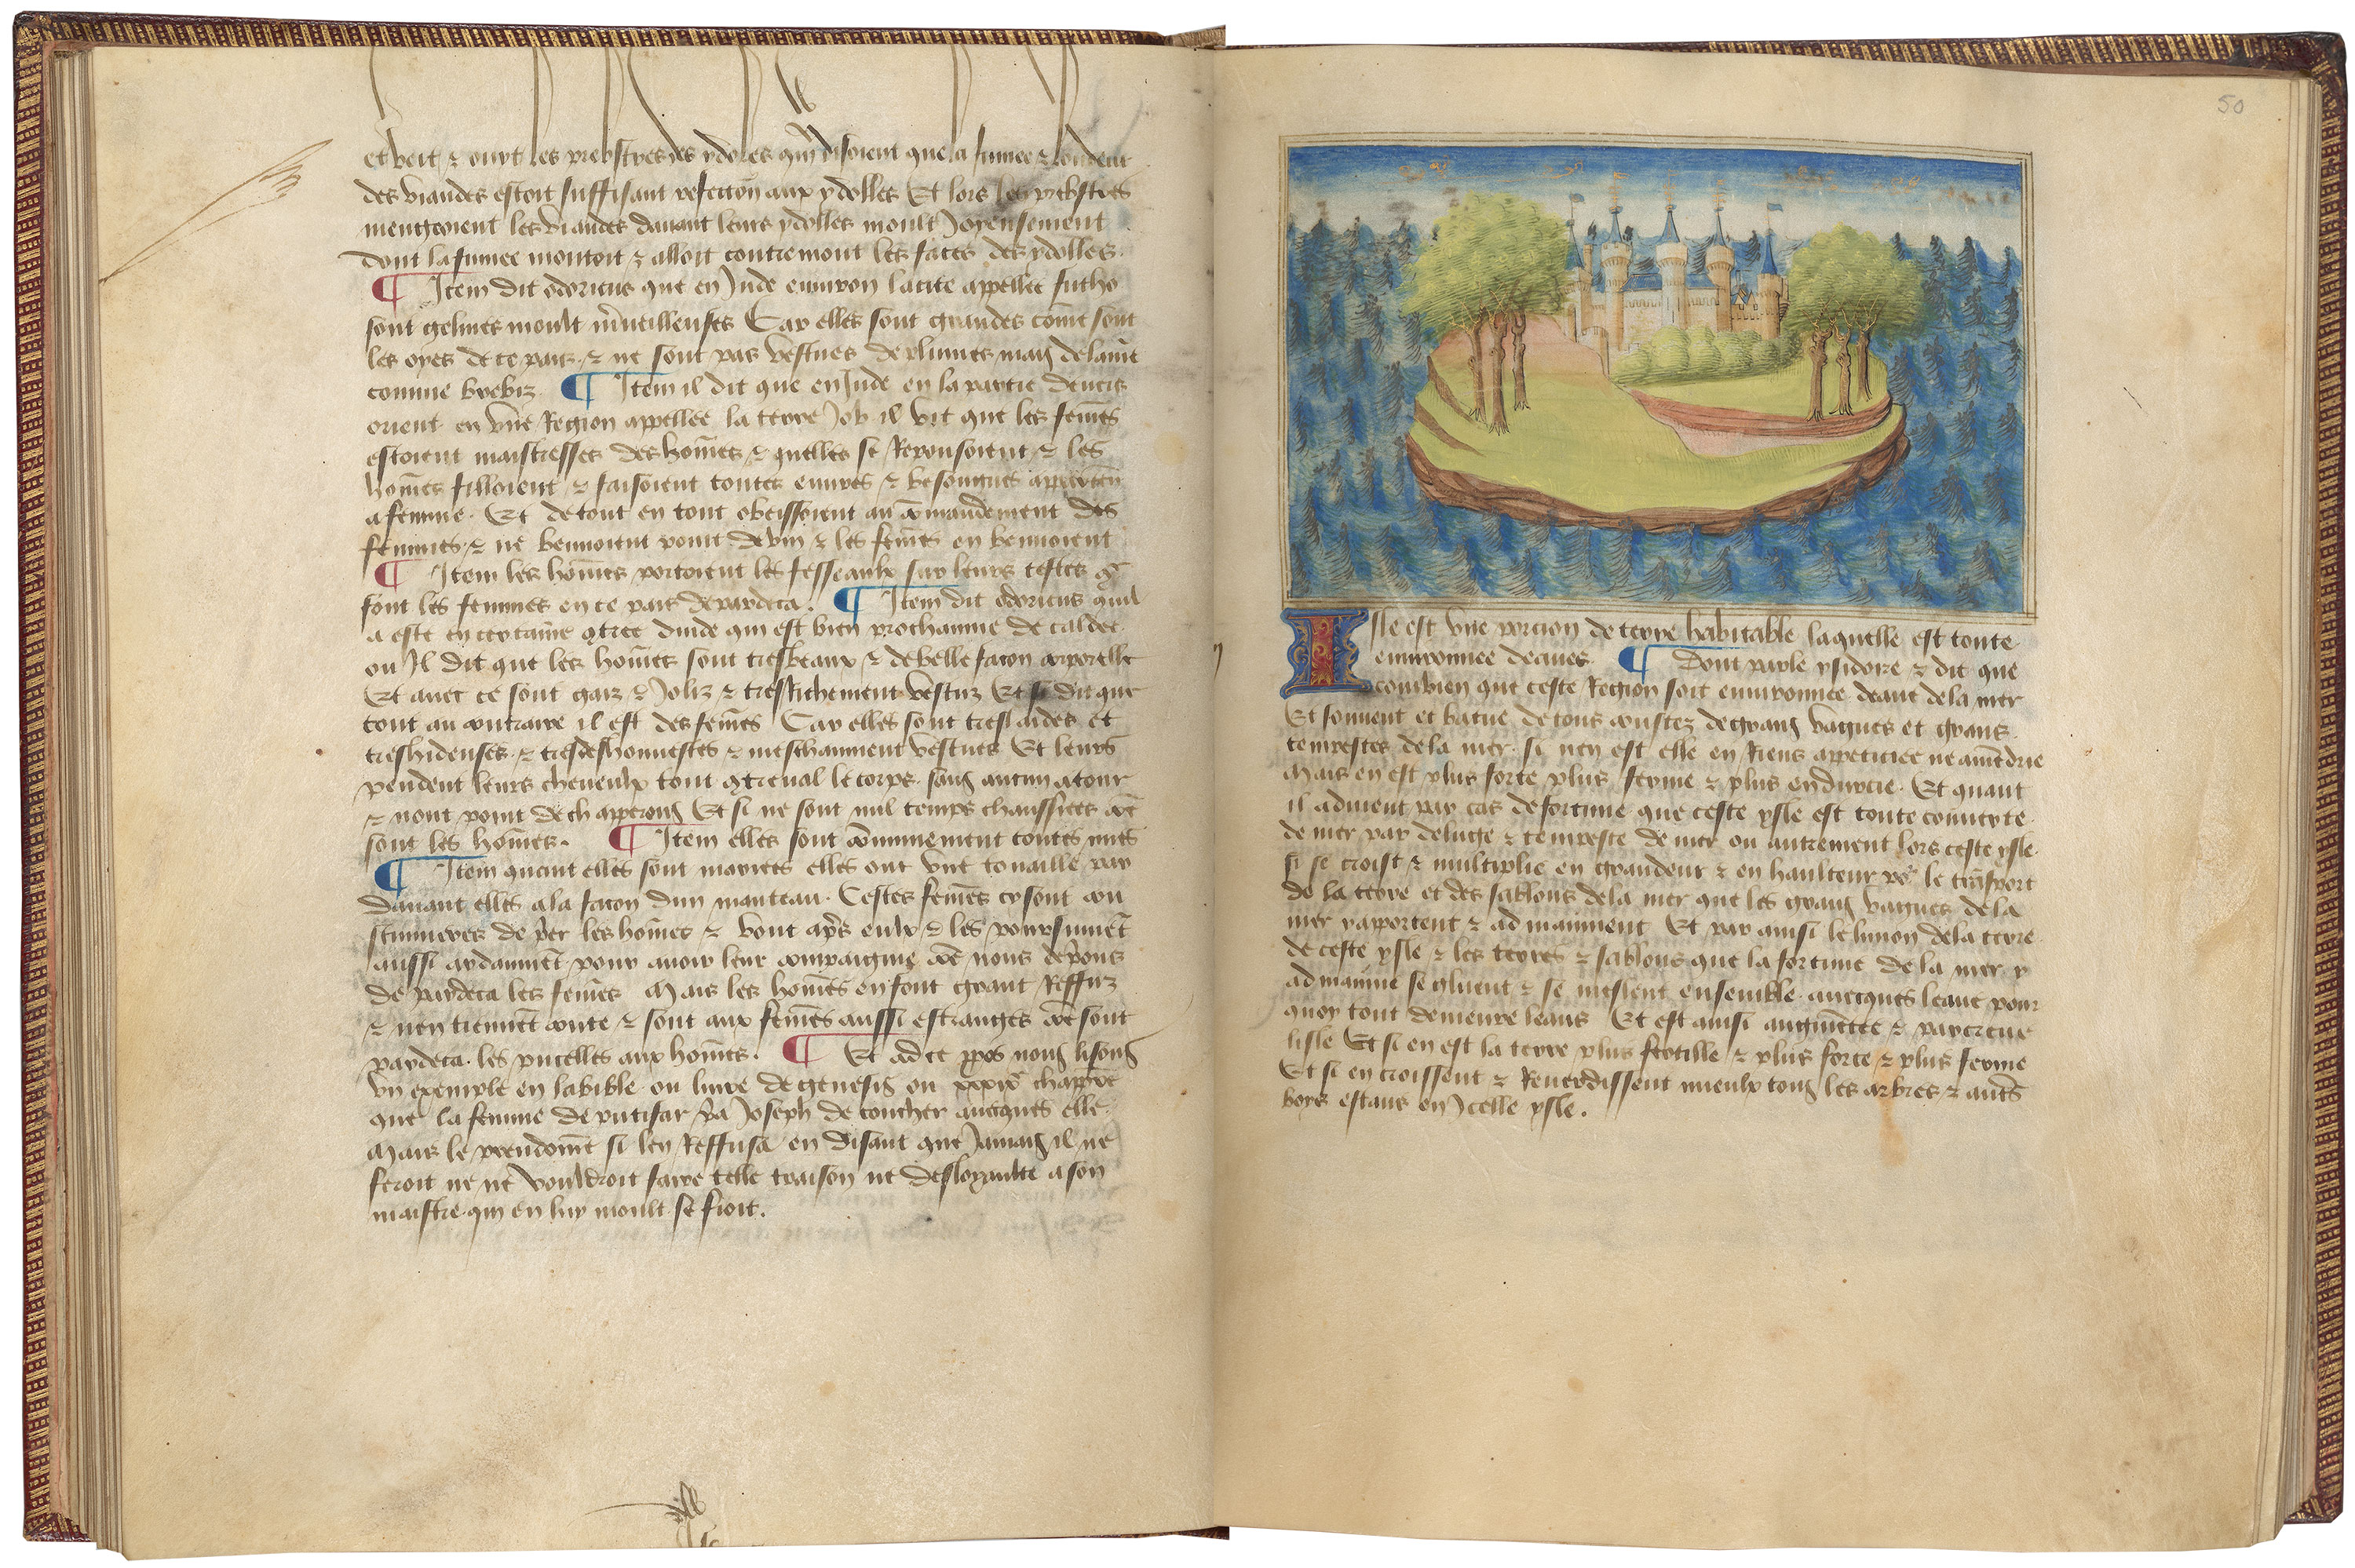 et veit ⁊ ouyt les prebstres des ydoles qui disoient que la fumee ⁊ loudeur
des viandes estoit suffisant refection aux ydolles Et lors les prebstres
mengeoient les viandes dauant leurs ydolles moult Joyeusement
dont la fumee montoit ⁊ alloit contremont les faces des ydolles.
¶ Item dit odoricus que en Jnde enuiron la cite appellee futho
sont gelines moult mueilleuses Car elles sont grandes come sont
les oyes de ce pais. ⁊ ne sont pas vestues de plumes mais de laine
comme brebiz ¶ Item il dit que en Jnde en la partie deuers
orient en vne Region appellee la terre Job il vit que les femes
estoient maistresses des homes ⁊ quelles se Reponsoient ⁊ les
homes filloient ⁊ faisoient toutes euures ⁊ besongnes apparten
a femme. Et de tout en tout obeissoient au comandement des
femmes. ⁊ ne beuuoient point de vin ⁊ les femes en beuuoient
¶ Item les homes portoient les fesseaulx sur leurs testes
font les femmes en ce pais de pardeca. ¶ Item dit odoricus quil
a este en certaine contree dinde qui est bien prochainne de caldee
ou Il dit que les homes sont tresbeaux ⁊ de belle facon corporelle
Et auec ce sont gaiz ⁊ Joliz ⁊ tresRichement vestuz Et si dit que
tout au contraire il est des femes Car elles sont treslaides et
treshideuses. ⁊ tresdeshonnestes ⁊ meschanment vestues Et leurs
pendent leurs cheueulx tout contreual le corps. sans aucun atour
⁊ nont point de chapperons Et si ne sont nul temps chaussiees coe
sont les homes. ¶ Item elles sont comunement toutes nues
¶ Item quant elles sont mariees elles ont vne touaille par
dauant elles a la facon dun manteau. Cestes femes cy sont cou
stumieres de prier les homes ⁊ vont apres eulx ⁊ les poursuiuet
aussi ardanmet pour auoir leur compaignie coe nous de pons
de pardeca les femes Mais les homes en font grant Reffuz
⁊ nen tiennet conte ⁊ sont aux femes aussi estranges coe sont
pardeca. les pucelles aux homes. ¶ Et a ce ppos nous lisons
vn exemple en la bible ou liure de genesis ou xxxix chappre
que la femme de putifar pria Joseph de coucher auecques elle.
Mais le preudome si len Reffusa en disant que Jamais il ne
feroit ne ne vouldroit faire telle traison ne desloyaulte a son
maistre. qui en luy moult se fioit.
50
Isle est vne porcion de terre habitable laquelle est toute
enuironnee deaues. ¶ Dont parle ysidoire ⁊ dit que
combien que ceste Region soit enuironnee deaue de la mer
Et souuent et batue de tous coustez de grans vagues et grans
tempestes de la mer. si nen est elle en Riens appeticiee ne amedrie
Mais en est plus forte plus ferme ⁊ plus endurcie. Et quant
il aduient par cas de fortune que ceste ysle est toute couuerte
de mer par deluge ⁊ tempeste de mer ou autrement lors ceste ysle
si se croist ⁊ multiplie en grandeur ⁊ en haulteur po le trasport
de la terre et des sablons de la mer que les grans vagues de la
mer rapportent ⁊ admainnent Et par ainsi le limon de la terre
de ceste ysle ⁊ les terres ⁊ sablons que la fortune de la mer y
admainne se gluent ⁊ se meslent ensemble. auecques leaue pour
quoy tout demeure leans Et est ainsi augmetee ⁊ parcreue
lisle Et si en est la terre plus fertille ⁊ plus forte ⁊ plus ferme
Et si en croissent ⁊ Reuerdissent mieulx tous les arbres ⁊ autres
boys estans en Jcelle ysle.